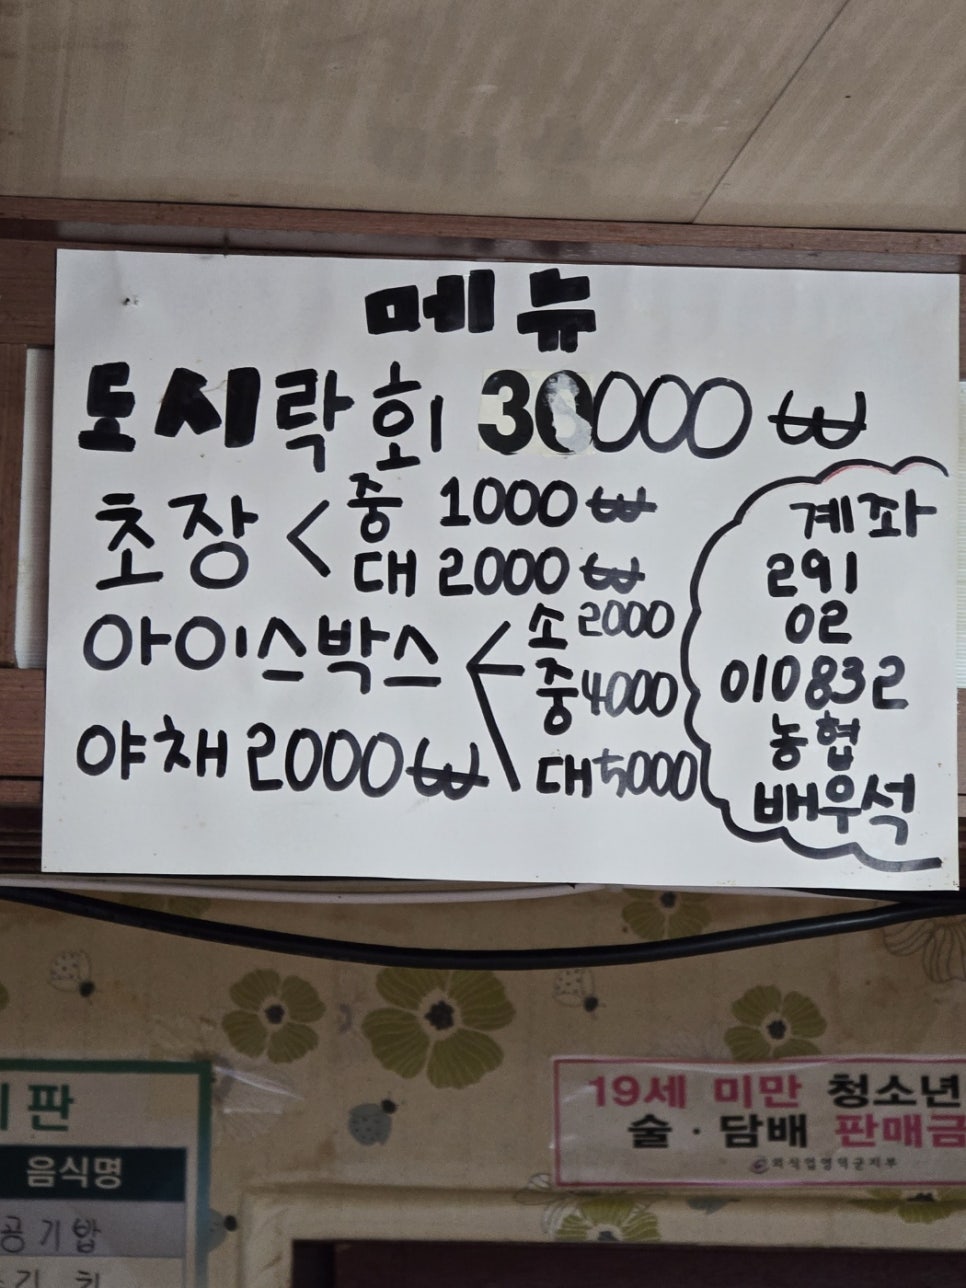 메뉴
도시락회 30000 ₩
초장 < 중 1000 ₩
대 2000 ₩
아이스박스 < 소 2000
중 4000
대 5000
야채 2000 ₩
계좌
291
02
010832
농협
배우석
판
음식명
공기밥
19세 미만 청소년
술 · 담배 판매금
외식업영덕군지부